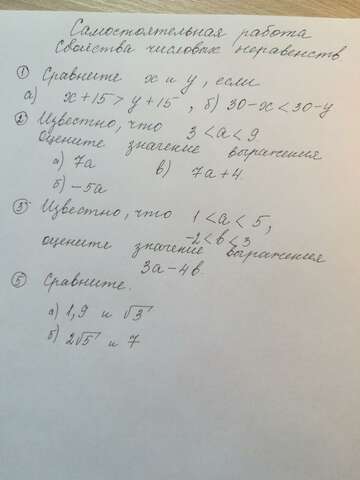 Самостоятельная работа
Свойства числовых неравенств
① Сравните x и y, если
а) x+15 > y+15, б) 30-x < 30-y
② Известно, что 3 < a < 9.
Оцените значение выражения
а) 7a в) 7a+4.
б) -5a
③ Известно, что 1 < a < 5,
-2 < b < 3
оцените значение выражения
3a-4b.
⑤ Сравните.
а) 1,9 и √3
б) 2√5 и 7